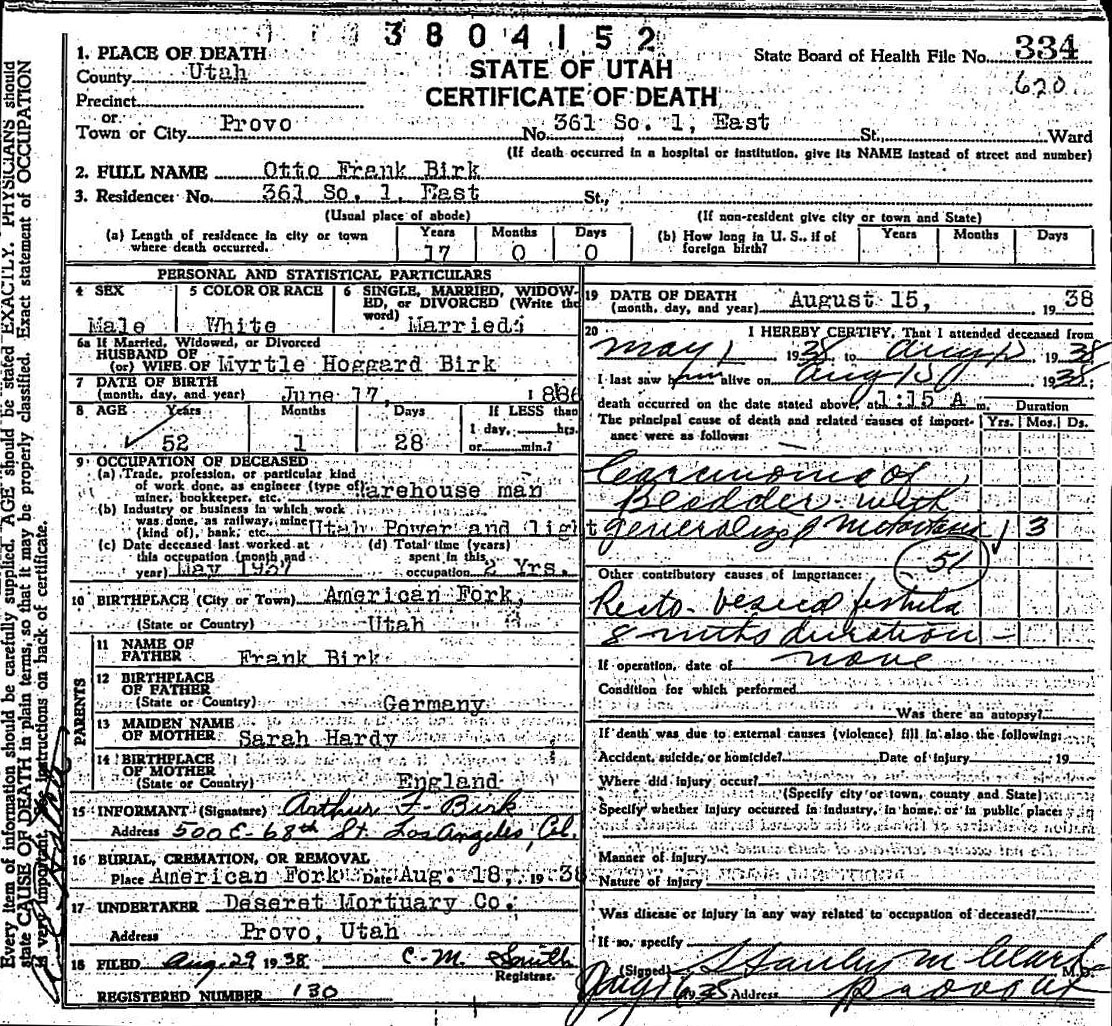 3804152
State Board of Health File No. 334
620
STATE OF UTAH
CERTIFICATE OF DEATH
1. PLACE OF DEATH
County Utah
Precinct
or
Town or City Provo No. 361 So. 1, East St. Ward
(If death occurred in a hospital or institution, give its NAME instead of street and number)
2. FULL NAME Otto Frank Birk
3. Residence: No. 361 So. 1, East St.,
(Usual place of abode) (If non-resident give city or town and State)
(a) Length of residence in city or town where death occurred. Years 17 Months 0 Days 0
(b) How long in U. S., if of foreign birth? Years Months Days
PERSONAL AND STATISTICAL PARTICULARS
4 SEX Male
5 COLOR OR RACE White
6 SINGLE, MARRIED, WIDOWED, or DIVORCED (Write the word) Married
6a If Married, Widowed, or Divorced
HUSBAND OF
(or) WIFE OF Myrtle Hoggard Birk
7 DATE OF BIRTH
(month, day, and year) June 17, 1886
8 AGE Years 52 Months 1 Days 28 If LESS than 1 day, hrs. or min.?
9 OCCUPATION OF DECEASED
(a) Trade, profession, or particular kind of work done, as engineer (type of) miner, bookkeeper, etc. Warehouse man
(b) Industry or business in which work was done, as railway, mine (kind of), bank, etc. Utah Power and light
(c) Date deceased last worked at this occupation (month and year) May 1937
(d) Total time (years) spent in this occupation 2 Yrs.
10 BIRTHPLACE (City or Town) American Fork,
(State or Country) Utah
PARENTS
11 NAME OF FATHER Frank Birk
12 BIRTHPLACE OF FATHER
(State or Country) Germany
13 MAIDEN NAME OF MOTHER Sarah Hardy
14 BIRTHPLACE OF MOTHER
(State or Country) England
15 INFORMANT (Signature) Arthur F. Birk
Address 500 E - 68th St. Los Angeles, Cal.
16 BURIAL, CREMATION, OR REMOVAL
Place American Fork Date Aug. 18, 1938
17 UNDERTAKER Deseret Mortuary Co.
Address Provo, Utah
18 FILED Aug. 29 1938 C. M. Smith
Registrar.
REGISTERED NUMBER 130
19 DATE OF DEATH
(month, day, and year) August 15, 1938
20 I HEREBY CERTIFY, That I attended deceased from
May 1 1938 to Aug 15 1938
I last saw him alive on Aug 15 1938;
death occurred on the date stated above, at 1:15 A m. Duration
The principal cause of death and related causes of importance were as follows: Yrs. Mos. Ds.
Carcinoma of
Bladder with
generalized metastasis 3
51
Other contributory causes of importance:
Recto-vesical fistula
8 mths duration
If operation, date of none
Condition for which performed
Was there an autopsy?
If death was due to external causes (violence) fill in also the following:
Accident, suicide, or homicide? Date of injury 19
Where did injury occur?
(Specify city or town, county and State)
Specify whether injury occurred in industry, in home, or in public place:
Manner of injury
Nature of injury
Was disease or injury in any way related to occupation of deceased?
If so, specify
(Signed) Stanley M Clark M.D.
Aug 16 1938 Address Provo Ut
Every item of information should be carefully supplied. AGE should be stated EXACTLY. PHYSICIANS should
state CAUSE OF DEATH in plain terms, so that it may be properly classified. Exact statement of OCCUPATION
is very important. See instructions on back of certificate.